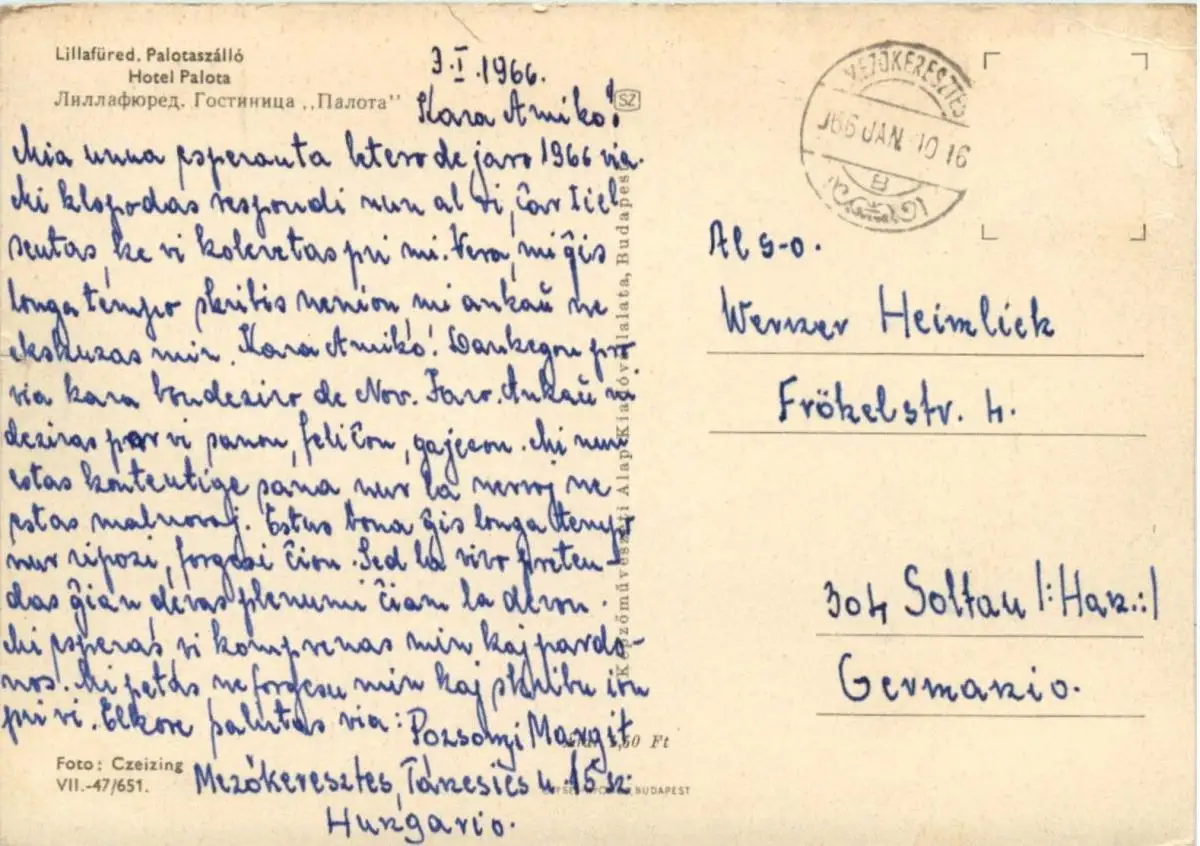 Lillafüred. Palotaszálló
Hotel Palota
Лиллафюред. Гостиница „Палота"
3.I.1966.
Kara Amiko!
Mia unua esperanta letero de jaro 1966 via.
Mi klopodas respondi nun al vi, ĉar
sentas, ke vi koleretas pri mi. Vera, mi ĝis
longa tempo skribis nenion, mi ankaŭ ne
ekskuzas min. Kara Amiko! Dankegon pro
via kara bondeziro de Nov. Jaro. Ankaŭ mi
deziras por vi sanon, feliĉon, gajecon. Mi nun
estas kontentige sana, nur la nervoj ne
estas malnovaj. Estus bona ĝis longa tempo
nur ripozi, forgesi ĉion. Sed la vivo preten-
das ĝian, devas plenumi ĉiam la devon.
Mi esperas vi komprenas min kaj pardo-
nos. Mi petas ne forgesu min kaj skribu ion
pri vi. Elkore salutas via: Pozsonyi Margit
Mezőkeresztes, Táncsics u. 15 sz.
Hungario.
Foto: Czeizing
VII.-47/651.
SZ
Képzőművészeti Alap Kiadóvállalata, Budapest
Ft
BUDAPEST
MEZŐKERESZTES
966 JAN 10 16
B
Al s-o.
Werner Heimlich
Frökelstr. 4.
304 Soltau /:Han.:/
Germanio.